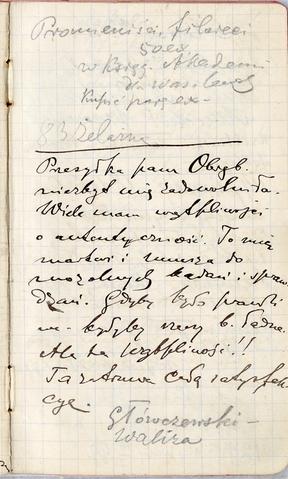 Promieniści, filareci
50 ex.
w Księg. Akademi
Kupić parę ex.
83 Żelazna
Przesyłka pani Obręb.
niezbyt mię zadowolniła.
Wiele mam wątpliwości
o autentyczność. To mię
martwi i zmusza do
mozolnych badań i spraw
dzań. Gdyby było prawdi
we - byłyby rzeczy b. ładne.
Ale ta wątpliwość!!
Ta zatruwa całą satysfak
cyę.
Główczewski -
Walizka